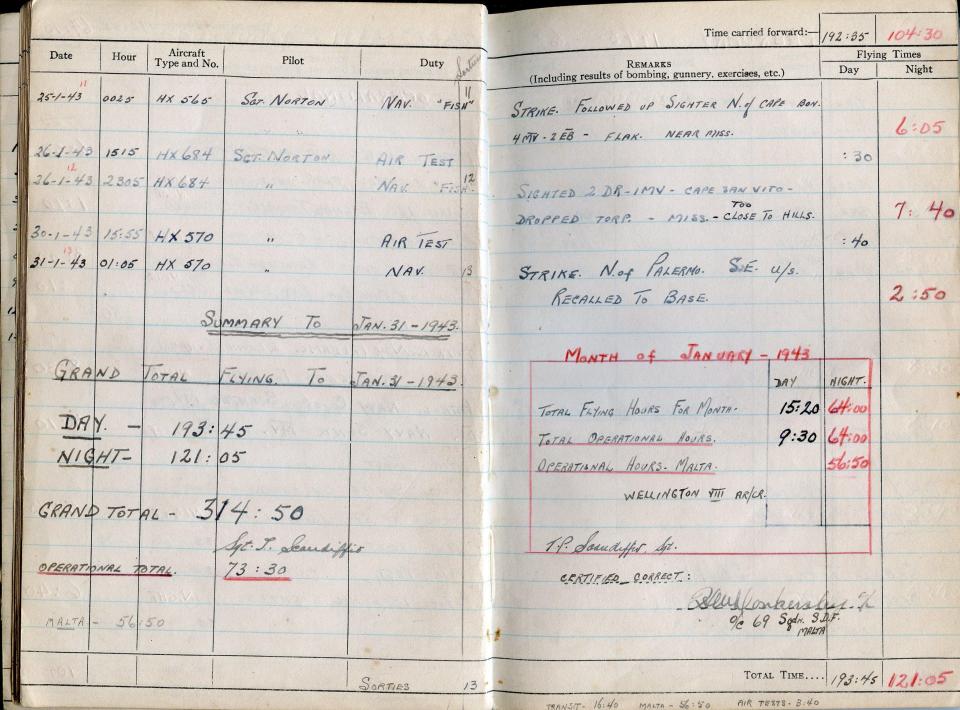 Date Hour Aircraft Type and No. Pilot Duty Sorties
11
25-1-43 0025 HX 565 Sgt. Norton Nav. "Fish" 11
26-1-43 1515 HX 684 Sgt. Norton Air Test
12
26-1-43 2305 HX 684 " Nav. "Fish" 12
30-1-43 15:55 HX 570 " Air Test
13
31-1-43 01:05 HX 570 " Nav. 13
Summary To Jan. 31-1943.
Grand Total Flying To Jan. 31-1943.
Day. - 193:45
Night- 121:05
Grand Total - 314:50
Sgt. T. Scandiffio
Operational Total. 73:30
Malta - 56:50
Sorties 13
Time carried forward:— 192:35 104:30
Remarks
(Including results of bombing, gunnery, exercises, etc.)
Flying Times
Day Night
Strike. Followed up Sighter N. of Cape Bon.
4 MV - 2 EB - Flak. Near Miss. 6:05
:30
Sighted 2 DR-1MV - Cape San Vito -
Dropped Torp. - Miss. - Too Close To Hills. 7:40
:40
Strike. N. of Palermo. S.E. u/s.
Recalled To Base. 2:50
Month of January - 1943
Day Night.
Total Flying Hours For Month. 15:20 64:00
Total Operational Hours. 9:30 64:00
Operational Hours - Malta. 56:50
Wellington VIII AR/LR.
T.P. Scandiffio Sgt.
Certified Correct:
O/C 69 Sqdn. S.D.F.
Malta
Total Time.... 193:45 121:05
Transit - 16:40 Malta - 56:50 Air Tests - 3:40